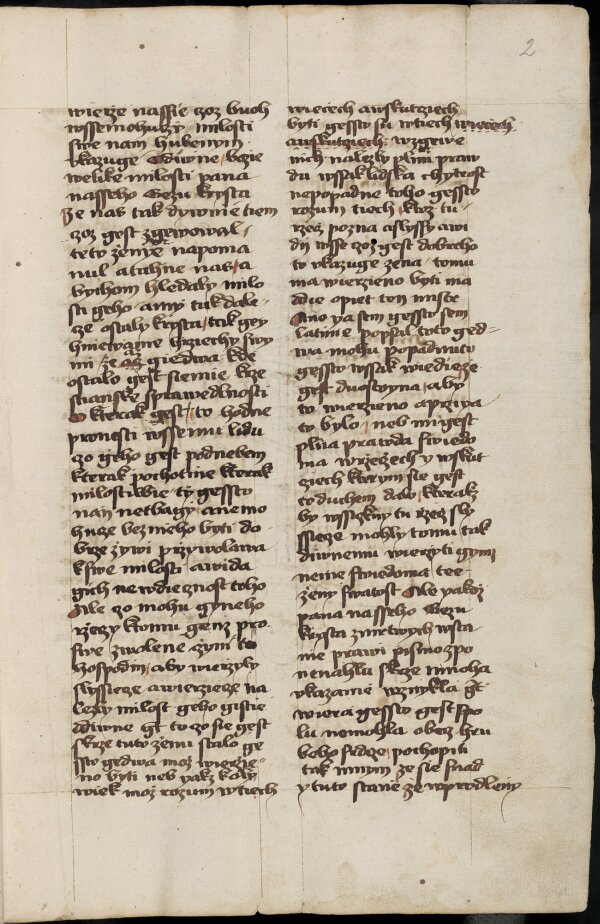 2
wierze nassie czoz buoh
wssemohuczy milosti
swe nam hubenym
vkazuge Ediwne bozie
welike milosti pana
nasseho Gezu krysta
Ze nas tak dywnie tiem
czoz gest zgewowal
teto zenye napoma
nul a tahne nas a
bychom hledaly milo
sti geho any tak dale
ze ostaly krysta tak gey
hniewame hrziechy swy
mi ze az giedwa kde
ostalo gest siemie krze
stianske sprawedlnosti
O kterak gest to hodne
pronesti wssemu lidu
czo geho gest podnebem
kterak pochotme kterak
milostiwie ty gessto
nan netbagy anemo
huze bez nieho byti do
brze zywi przywolawa
kswe milosti awida
gich newdiecznost toho
Ale czo mohu gyneho
rzeczy komu genz pro
swe zwolene czyni to
hospodin aby wierzyly
slyssieze a wierzieze na
lezly milost geho gistie
ediwne gt to czo sie gest
skrze tuto zenu stalo ge
ssto gedwa moz wierzie
no byti neb yakz koly
wiek moz rozum wtiech
wiecech askutcziech
byti gessto su wtiech wiecech
askutcziech wzgewe
nich nalezly plnu praw
du wssak lidska chytrost
nepopadne toho gessto
rozum tiech ktoz tu
rzecz pozna aslyssy awi
dy wsse czoz gest dobreho
to vkazuge zena tomu
ma wierzieno byti ma
adie opiet ten miste
Ano ya sem gessto sem
latinie poppsal toto ged
wa mohu popadnuti
gessto wssak wiedieze
gest duostoyna aby
to wierzieno aprzwa
to bylo neb mi gest
plna prawda swiedo
ma wrzeczech y wskut
cziech kterym sie gest
to duchem dalo kterakz
by wssiczkny tu rzecz sly
ssieze mohly tomu tak
diwnemu wierzyti gymz
neme swiedoma tee
zeny swatost Ale yakoz
pana nasseho Gezu
krysta zmrtwych wsta
nie prawi pismo zpo
nenahlu skrze mnoha
vkazanie wznykla gt
wiera gessto gest spo
lu nemohla obecz heu
bobo srdcze pochopiti
tak mnym ze sie snad
y tuto stane ze wprodleny